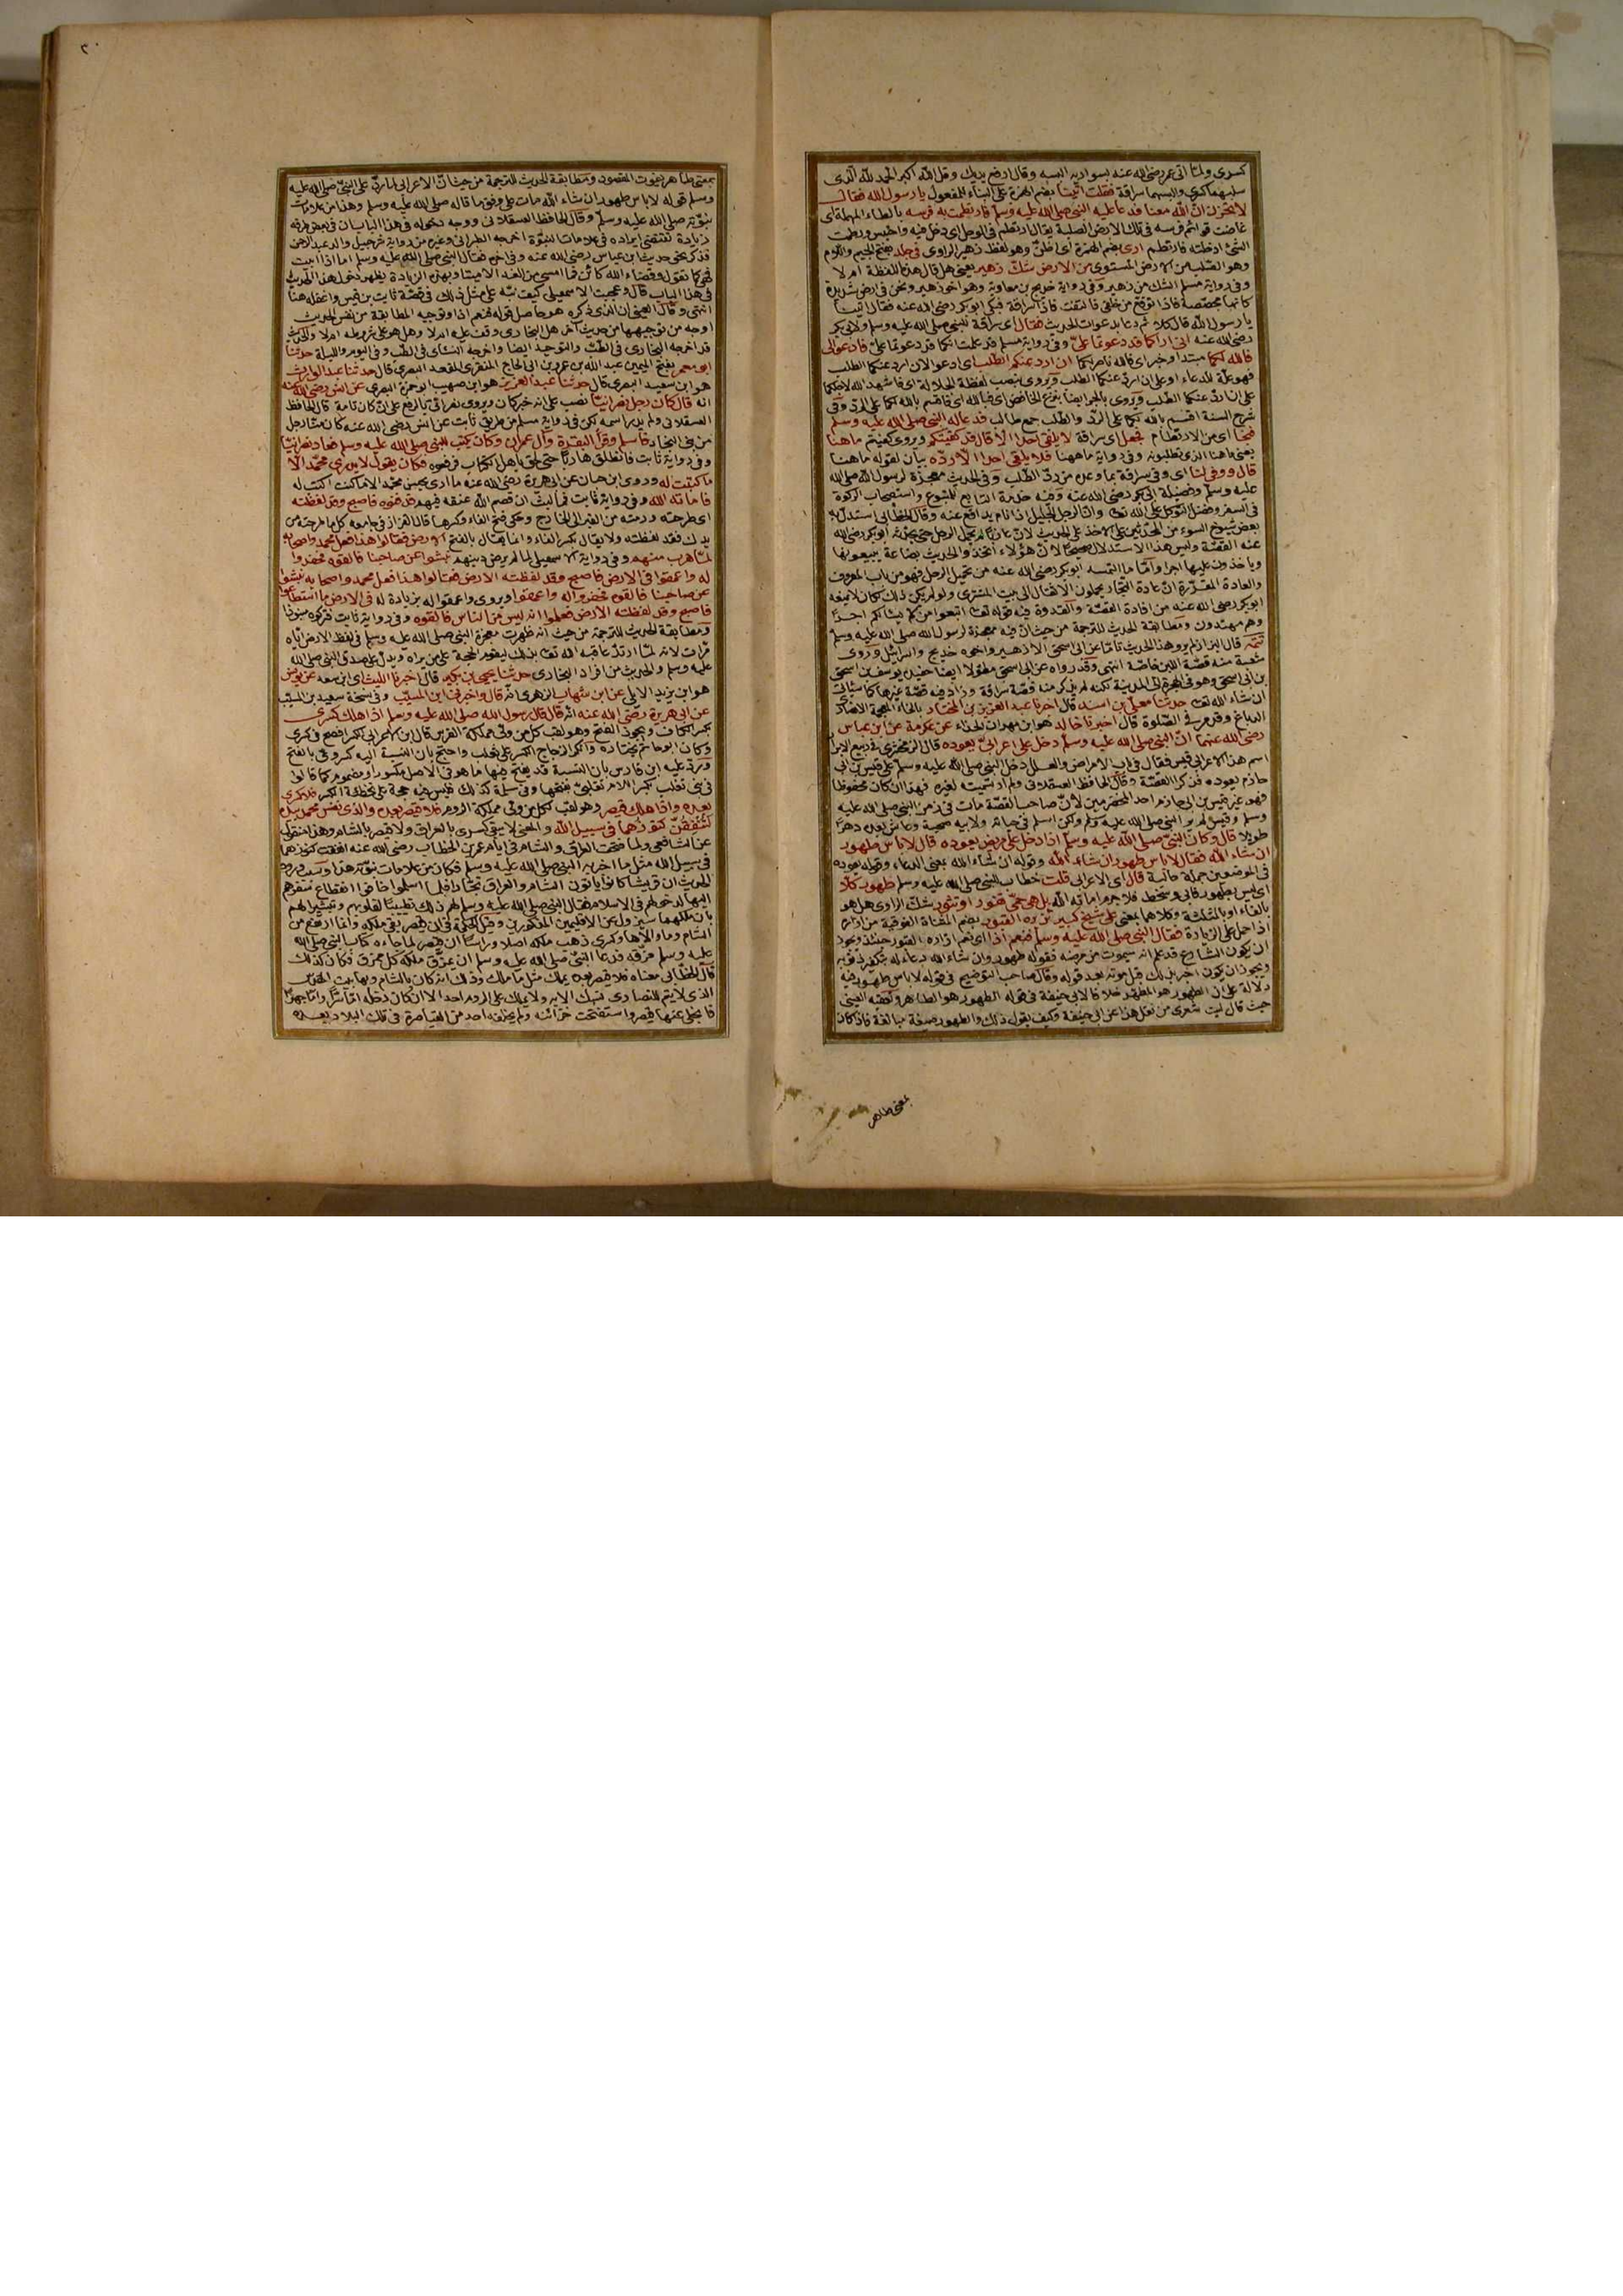 كسرى ولما اتى عمر رضى الله عنه بسواريه البسه وقال ارفع يديك وقل الله اكبر الحمد لله الذى
سلبهما كسرى والبسهما سراقة فقلت اتينا بضم الهمزة على البناء للمفعول يا رسول الله فقال
لا تحزن ان الله معنا فدعا عليه النبى صلى الله عليه وسلم فارتطمت به فرسه بالطاء المهملة اى
غاصت قوائم فرسه فى تلك الارض الصلبة يقال ارتطم فى الوحل اى دخل فيه واحتبس ورطمت
الشئ ادخلته فارتطم ارى بضم الهمزة اى اظن وهو لفظ زهير الراوى فى جلد بفتح الجيم واللام
وهو الصلب من الارض المستوى من الارض شك زهير يعنى هل قال هذه اللفظة ام لا
وفى رواية مسلم الشك من زهير وفى رواية خديج بن معاوية وهو اخو زهير ونحن فى ارض شديدة
كانها مجصصة فاذا بوقع من خلفى فالتفت فاذا سراقة فبكى ابو بكر رضى الله عنه فقال اتينا
يا رسول الله قال كلا ثم دعا بدعوات الحديث فقال اى سراقة للنبى صلى الله عليه وسلم ولابى بكر
رضى الله عنه انى اراكما قد دعوتما على وفى رواية مسلم قد علمت انكما قد دعوتما على فادعوا لى
فالله لكما مبتدا وخبر اى فالله ناصر لكما ان ارد عنكما الطلب اى ادعو لان ارد عنكما الطلب
فهو علة للدعاء او على ان ارد عنكما الطلب ويروى بنصب لفظة الجلالة اى فاشهد الله لاجلكما
على ان ارد عنكما الطلب ويروى بالجر ايضا بنزع الخافض اى فبالله اى فاقسم بالله لكما على الرد وفى
شرح السنة اقسم بالله لكما على الرد والطلب جمع طالب فدعا له النبى صلى الله عليه وسلم
فنجا اى من الارتطام فجعل اى سراقة لا يلقى احدا الا قال قد كفيتكم ويروى كفيتم ما هنا
يعنى ما هنا الذى تطلبونه وفى رواية ما ههنا فلا يلقى احدا الا رده بيان لقوله ما هنا
قال ووفى لنا اى وفى سراقة بما وعده من رد الطلب وفى الحديث معجزة لرسول الله صلى الله
عليه وسلم وفضيلة ابى بكر رضى الله عنه وفيه خدمة التابع للمتبوع واستصحاب الركوة
فى السفر وفضل التوكل على الله تعالى وان الرجل الجليل اذا نام يدافع عنه وقال الخطابى استدل به
بعض شيوخ السوء من المحدثين على الاخذ على الحديث لان عازبا لم يحمل الرحل حتى يحدثه ابو بكر رضى الله
عنه القصة وليس هذا الاستدلال صحيحا لان هؤلاء اتخذوا الحديث بضاعة يبيعونها
وياخذون عليها اجرا واما ما التمسه ابو بكر رضى الله عنه من تحميل الرحل فهو من باب المعروف
والعادة المقررة ان عادة التجار يحملون الاثقال الى بيت المشترى ولو لم يكن ذلك لكان لا يمنعه
ابو بكر رضى الله عنه من افادة القصة والقدوة فيه قوله تعالى اتبعوا من لا يسئلكم اجرا
وهم مهتدون ومطابقة الحديث للترجمة من حيث ان فيه معجزة لرسول الله صلى الله عليه وسلم
تتمة قال البزاز لم يرو هذا الحديث تاما عن ابى اسحق الا زهير واخوه خديج واسرائيل وروى
شعبة منه قصة اللبن خاصة انتهى وقد رواه عن ابى اسحق مطولا ايضا حفيده يوسف بن اسحق
بن ابى اسحق وهو فى الهجرة الى المدينة لكنه لم يذكر منه قصة سراقة وزاد فيه قصة غيرها كما سيأتى
ان شاء الله تعالى حدثنا معلى بن اسد قال اخبرنا عبد العزيز بن المختار بالخاء المعجمة الانصارى
الدباغ وقد مر فى الصلوة قال اخبرنا خالد هو ابن مهران الحذاء عن عكرمة عن ابن عباس
رضى الله عنهما ان النبى صلى الله عليه وسلم دخل على اعرابى يعوده قال الزمخشرى فى ربيع الابرار
اسم هذا الاعرابى قيس فقال فى باب الامراض والعلل دخل النبى صلى الله عليه وسلم على قيس بن ابى
حازم يعوده فذكر القصة وقال الحافظ العسقلانى ولم ار تسميته لغيره فهذا ان كان محفوظا
فهو غير قيس بن ابى حازم احد المخضرمين لان صاحب القصة مات فى زمن النبى صلى الله عليه
وسلم وقيس لم ير النبى صلى الله عليه وسلم ولكن اسلم فى حياته ولابيه صحبة وعاش بعده دهرا
طويلا قال وكان النبى صلى الله عليه وسلم اذا دخل على مريض يعوده قال لا باس طهور
ان شاء الله فقال لا باس طهور ان شاء الله وقوله ان شاء الله بمعنى الدعاء وقوله يعوده
فى الموضعين جملة حالية قال اى الاعرابى قلت خطاب للنبى صلى الله عليه وسلم طهور كلا
اى ليس بطهور فابى وسخط فلا جرم اماته الله بل هى حمى تفور او تثور شك الراوى هل هو
بالفاء او بالمثلثة وكلاهما بمعنى على شيخ كبير تزيره القبور بضم المثناة الفوقية من ازاره
اذا حمله على الزيارة فقال النبى صلى الله عليه وسلم فنعم اذا اى نعم ازاره القبور حينئذ ويجوز
ان يكون الشارع قد علم انه سيموت من مرضه فقوله طهور وان شاء الله دعاء له بتكفير ذنوبه
ويجوز ان يكون اخبر بذلك قبل موته بعد قوله وقال صاحب التوضيح فى قوله لا باس طهور فيه
دلالة على ان الطهور هو المطهر خلافا لابى حنيفة فى قوله الطهور هو الطاهر وتعقبه العينى
حيث قال ليت شعرى من نقل هذا عن ابى حنيفة وكيف يقول ذلك والطهور صيغة مبالغة فاذا كان
بمعنى طاهر
بمعنى طاهر يفوت المقصود ومطابقة الحديث للترجمة من حيث ان الاعرابى لما رد على النبى صلى الله عليه
وسلم قوله لا باس طهور ان شاء الله مات على وفق ما قاله صلى الله عليه وسلم وهذا من علامات
نبوته صلى الله عليه وسلم وقال الحافظ العسقلانى ووجه دخوله فى هذا الباب ان فى بعض طرقه
زيادة تقتضى ايراده فى علامات النبوة اخرجه الطبرانى وغيره من رواية شرحبيل والد عبد الرحمن
فذكر نحو حديث ابن عباس رضى الله عنه وفى اخره فقال النبى صلى الله عليه وسلم اما اذا ابيت
فهى كما تقول وقضاء الله كائن فما امسى من الغد الا ميتا وبهذه الزيادة يظهر دخول هذا الحديث
فى هذا الباب قال وعجبت للاسمعيلى كيف نبه على مثل ذلك فى قصة ثابت بن قيس واغفله هنا
انتهى وقال العينى ان الذى ذكره هو حاصل قوله فنعم اذا وتوجيه المطابقة من نفس الحديث
اوجه من توجيهها من حديث آخر هل البخارى وقف عليه ام لا وهل هو على شرطه ام لا والحديث
قد اخرجه البخارى فى الطب والتوحيد ايضا واخرجه النسائى فى الطب وفى اليوم والليلة حدثنا
ابو معمر بفتح الميمين عبد الله بن عمرو بن ابى الحجاج المنقرى المقعد البصرى قال حدثنا عبد الوارث
هو ابن سعيد البصرى قال حدثنا عبد العزيز هو ابن صهيب ابو حمزة البصرى عن انس رضى الله عنه
انه قال كان رجل نصرانيا نصب على انه خبر كان ويروى نصرانى بالرفع على ان كان تامة قال الحافظ
العسقلانى ولم يدر اسمه لكن فى رواية مسلم من طريق ثابت عن انس رضى الله عنه كان منا رجل
من بنى النجار فاسلم وقرأ البقرة وآل عمران وكان يكتب للنبى صلى الله عليه وسلم فعاد نصرانيا
وفى رواية ثابت فانطلق هاربا حتى لحق باهل الكتاب فرفعوه فكان يقول لا يدرى محمد الا
ما كتبت له وروى ابن حبان عن ابى هريرة رضى الله عنه ما ارى يحسن محمد الا ما كنت اكتب له
فاماته الله وفى رواية ثابت فما لبث ان قصم الله عنقه فيهم فدفنوه فاصبح وقد لفظته
اى طرحته ورمته من القبر الى الخارج وحكى فتح الفاء وكسرها قال القزاز فى جامعه كل ما طرحته من
يدك فقد لفظته ولا يقال بكسر الفاء وانما يقال بالفتح الارض فقالوا هذا فعل محمد واصحابه
لما هرب منهم وفى رواية الاسمعيلى لما لم يرض دينهم نبشوا عن صاحبنا فالقوه فحفروا
له واعمقوا فى الارض فاصبح وقد لفظته الارض فقالوا هذا فعل محمد واصحابه نبشوا
عن صاحبنا فالقوه فحفروا له واعمقوا ويروى واعمقوا له بزيادة له فى الارض ما استطاعوا
فاصبح وقد لفظته الارض فعلموا انه ليس من الناس فالقوه وفى رواية ثابت فتركوه منبوذا
ومطابقة الحديث للترجمة من حيث انه ظهرت معجزة النبى صلى الله عليه وسلم فى لفظ الارض اياه
مرات لانه لما ارتد عاقبه الله تعالى بذلك ليقوم الحجة على من يراه ويدل على صدق النبى صلى الله
عليه وسلم والحديث من افراد البخارى حدثنا يحيى بن بكير قال اخبرنا الليث اى ابن سعد عن يونس
هو ابن يزيد الايلى عن ابن شهاب الزهرى انه قال واخبرنى ابن المسيب وفى نسخة سعيد بن المسيب
عن ابى هريرة رضى الله عنه انه قال قال رسول الله صلى الله عليه وسلم اذا هلك كسرى
بكسر الكاف ويجوز الفتح وهو لقب كل من ولى مملكة الفرس قال ابن الاعرابى الكسر افصح فى كسرى
وكان ابو حاتم يختاره وانكر الزجاج الكسر على ثعلب واحتج بان النسبة اليه كسروى بالفتح
ورد عليه ابن فارس بان النسبة قد يفتح فيها ما هو فى الاصل مكسور او مضموم كما قالوا
فى بنى تغلب بكسر اللام تغلبى بفتحها وفى سلمة كذلك فليس فيه حجة على تخطئة الكسر فلا كسرى
بعده واذا هلك قيصر وهو لقب لكل من ولى مملكة الروم فلا قيصر بعده والذى نفس محمد بيده
لتنفقن كنوزهما فى سبيل الله والمعنى لا يبقى كسرى بالعراق ولا قيصر بالشام وهذا منقول
عن الشافعى ولما فتحت العراق والشام فى ايام عمر بن الخطاب رضى الله عنه انفقت كنوزهما
فى سبيل الله مثل ما اخبر به النبى صلى الله عليه وسلم فكان من علامات نبوته هذا وسبب ورود
الحديث ان قريشا كانوا ياتون الشام والعراق تجارا فلما اسلموا خافوا انقطاع سفرهم
اليهما لدخولهم فى الاسلام فقال النبى صلى الله عليه وسلم لهم ذلك تطييبا لقلوبهم وتبشيرا لهم
بان ملكهما سيزول عن الاقليمين المذكورين وقيل الحكمة فى ان قيصر بقى ملكه وانما ارتفع من
الشام وما والاها وكسرى ذهب ملكه اصلا وراسا ان قيصر لما جاءه كتاب النبى صلى الله
عليه وسلم مزقه فدعا النبى صلى الله عليه وسلم ان يمزق ملكه كل ممزق فكان كذلك
قال الخطابى معناه فلا قيصر بعده يملك مثل ما ملك وذلك انه كان بالشام وبها بيت المقدس
الذى لا يتم للنصارى نسك الا به ولا يملك على الروم احد الا ان كان دخله اما سرا واما جهرا
فانجلى عنها قيصر واستفتحت خزائنه ولم يخلفه احد من القياصرة فى تلك البلاد بعده